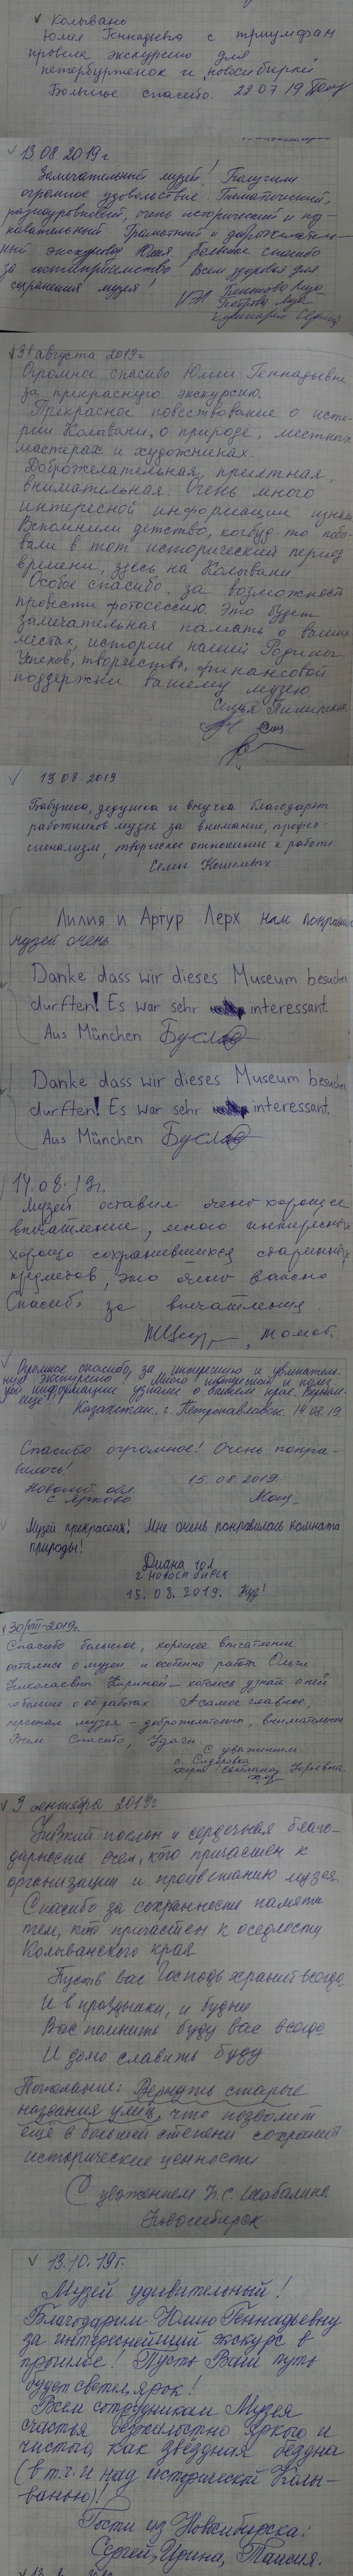 Колывань
Юлия Геннадьевна с триумфом
провела экскурсию для
петербурженок и новосибирки
Большое спасибо. 23 07 19
13 08 2019 г
Замечательный музей! Получили
огромное удовольствие. Тематический,
разноуровневый, очень исторический и поз-
навательный. Грамотный и доброжелатель-
ный экскурсовод Юлия. Большое спасибо
за гостеприимство. Всем здоровья для
сохранения музея!
31 августа 2019 г
Огромное спасибо Юлии Геннадьевне
за прекрасную экскурсию.
Прекрасное повествование о исто-
рии Колывани, о природе, местных
мастерах и художниках.
Доброжелательная, приятная,
внимательная. Очень много
интересной информации узнали
Вспомнили детство, когбуд-то побы-
вали в тот исторический период
времени, здесь на Колывани.
Особое спасибо, за возможность
провести фотосессию. Это будет
замечательная память о ваших
местах, истории нашей Родины
Успехов, творчества, финансовой
поддержки вашему музею
Семья
13.08.2019
Бабушка, дедушка и внучка благодарят
работников музея за внимание, профес-
сионализм, творческое отношение к работе
Семья Кошелевых
Лилия и Артур Лерх нам понравился
музей очень
Danke dass wir dieses Museum besuchen
durften! Es war sehr interessant.
Aus München
Danke dass wir dieses Museum besuchen
durften! Es war sehr interessant.
Aus München
14.08.19г.
Музей оставил очень хорошее
впечатление, много интересного
хорошо сохранившихся старинных
предметов, это очень важно
Спасибо за впечатления.
Огромное спасибо, за интересную и увлекатель-
ную экскурсию. Много интересной и полез-
ной информации узнали о вашем крае.
Казахстан. г. Петропавловск. 14.08.19
Спасибо огромное! Очень понра-
вилось!
15.08.2019
Новосиб. обл.
с Ярково
Музей прекрасен! Мне очень понравилась комната
природы!
Диана 10л
г Новосибирск
15.08.2019.
30/VIII-2019г.
Спасибо большое, хорошее впечатление
осталось о музеи и особенно работы Ольги
Николаевны Кириной – хотелось узнать о ней
побольше о её работах. А самое главное,
персонал музея – доброжелательны, внимательны
Всем Спасибо, Удачи
С уважением
с. Сидоровка
Светлана Юрьевна
3 сентября 2019г
Низкий поклон и сердечная благо-
дарность всем, кто причастен к
организации и процветанию музея
Спасибо за сохранность памяти
тем, кто причастен к оседлости
Колыванского края
Пусть вас Господь хранит всегда
И в праздники, и будни
Вас помнить буду вас всегда
И долго славить буду
Пожелание: Вернуть старые
названия улиц, что позволит
ещё в большей степени сохранить
исторические ценности
С уважением Н.С. Шабалина
Новосибирск
13.10.19г.
Музей удивительный!
Благодарим Юлию Геннадьевну
за интереснейший экскурс в
прошлое! Пусть Ваш путь
будет светел, ярок!
Всем сотрудникам Музея
счастья
чистого, как звёздная бездна
(в т.ч. и над исторической Колы-
ванью)!
Гости из Новосибирска:
Сергей, Ирина, Таисия.